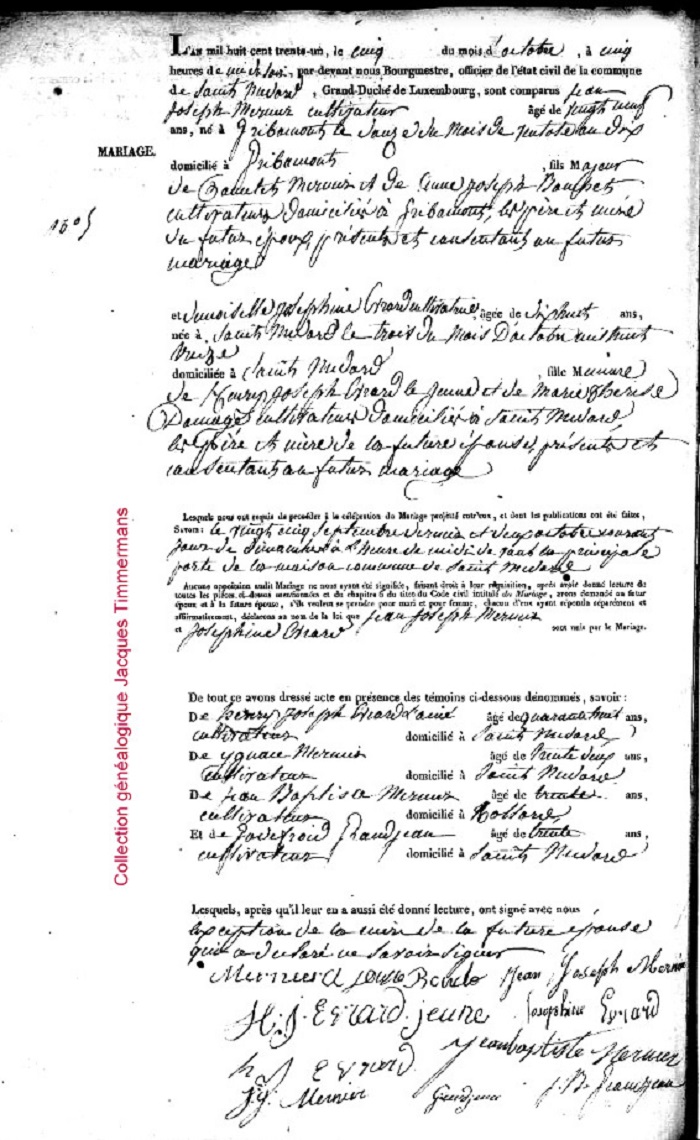 L'AN mil huit cent trente-un, le cinq du mois d'octobre, à cinq
heures de , par-devant nous Bourgmestre, officier de l'état civil de la commune
de Saint Médard, Grand-Duché de Luxembourg, sont comparus Jean
Joseph Mernier cultivateur âgé de vingt neuf
ans, né à Gribomont le du mois de an dix
MARIAGE.
domicilié à Gribomont, fils Majeur
de Mernier et de Anne Joseph
cultivateurs domiciliés à Gribomont, les père et mère
du futur époux, présents et consentants au futur
mariage
et demoiselle Josephine Evrard cultivatrice, âgée de dix huit ans,
née à Saint Médard le trois du mois d'octobre mil huit
treize
domiciliée à Saint Médard, fille Mineure
de Henry Joseph Evrard le jeune et de Marie Therese
cultivateurs domiciliés à Saint Médard,
les père et mère de la future épouse, présents et
consentants au futur mariage
Lesquels nous ont requis de procéder à la célébration du Mariage projeté entr'eux, et dont les publications ont été faites,
Savoir: le vingt cinq Septembre dernier et deux octobre courant
jours de dimanche à l'heure de midi devant la principale
porte de la maison commune de Saint Médard
Aucune opposition audit Mariage ne nous ayant été signifiée, faisant droit à leur réquisition, après avoir donné lecture de
toutes les pièces ci-dessus mentionnées et du chapitre 6 du titre du Code civil intitulé du Mariage, avons demandé au futur
époux et à la future épouse, s'ils veulent se prendre pour mari et pour femme, chacun d'eux ayant répondu séparément et
affirmativement, déclarons au nom de la loi que Jean Joseph Mernier
et Josephine Evrard sont unis par le Mariage.
De tout ce avons dressé acte en présence des témoins ci-dessous dénommés, savoir:
De henry Joseph Evrard l'ainé âgé de quarante huit ans,
cultivateur domicilié à Saint Médard
De ygnace Mernier âgé de trente deux ans,
cultivateur domicilié à Saint Médard
De Jean Baptiste Mernier âgé de trente ans,
cultivateur domicilié à
Et de Godefroid Grandjean âgé de trente ans,
cultivateur domicilié à Saint Médard
Lesquels, après qu'il leur en a aussi été donné lecture, ont signé avec nous
exception de la mère de la future épouse
qui a déclaré ne savoir signer
Mernier Jean Joseph Mernier
H. J. Evrard jeune Josephine Evrard
Jean baptiste Mernier
h J Evrard
J. B. Grandjean
Mernier
Collection généalogique Jacques Timmermans